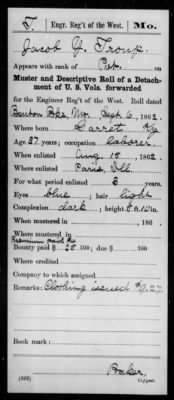 T. | Engr. Reg't of the West. | Mo.
Jacob Y. Troup.
Appears with rank of Pvt. on
Muster and Descriptive Roll of a Detach-
ment of U. S. Vols. forwarded
for the Engineer Reg't of the West. Roll dated
Benton Bks, Mo. Sept. 6, 1862.
Where born Garret, Ky
Age 37 years; occupation laborer.
When enlisted Aug 15, 1862.
Where enlisted Paris, Ill.
For what period enlisted 3 years.
Eyes blue; hair light
Complexion dark; height 5 ft. 10 in.
When mustered in , 186 .
Where mustered in
Premium paid $2
Bounty paid $ 25 .100; due $ .100
Where credited
Company to which assigned
Remarks: Clothing issued $9.27
Book mark:
Baker,
(339) Copyist.